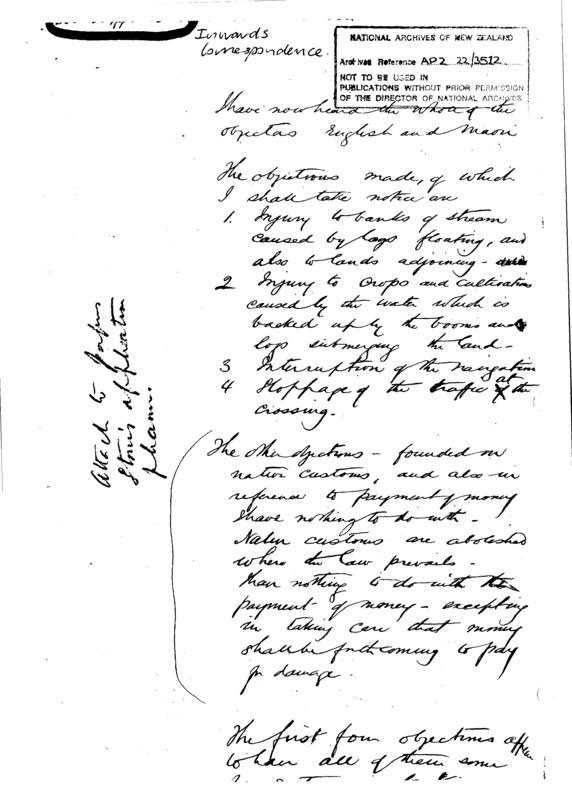 Inwards
Correspondence.
NATIONAL ARCHIVES OF NEW ZEALAND
Archives Reference AP2 22/3512
NOT TO BE USED IN
PUBLICATIONS WITHOUT PRIOR PERMISSION
OF THE DIRECTOR OF NATIONAL ARCHIVES
I have now heard the whole of the
objectors English and Maori
The objections made, of which
I shall take notice are
1. Injury to banks of stream
caused by logs floating, and
also to lands adjoining -
2 Injury to crops and cultivations
caused by the water which is
backed up by the booms and
logs submerging the land -
3 Interruption of the navigation
4 Stoppage of the traffic at the
crossing.
The other objections - founded on
native customs, and also in
reference to payment of money
I have nothing to do with -
Native customs are abolished
where the law prevails -
I have nothing to do with the
payment of money - excepting
in taking care that money
shall be forthcoming to pay
for damage.
The first four objections
to have all of them some
Attach to
application